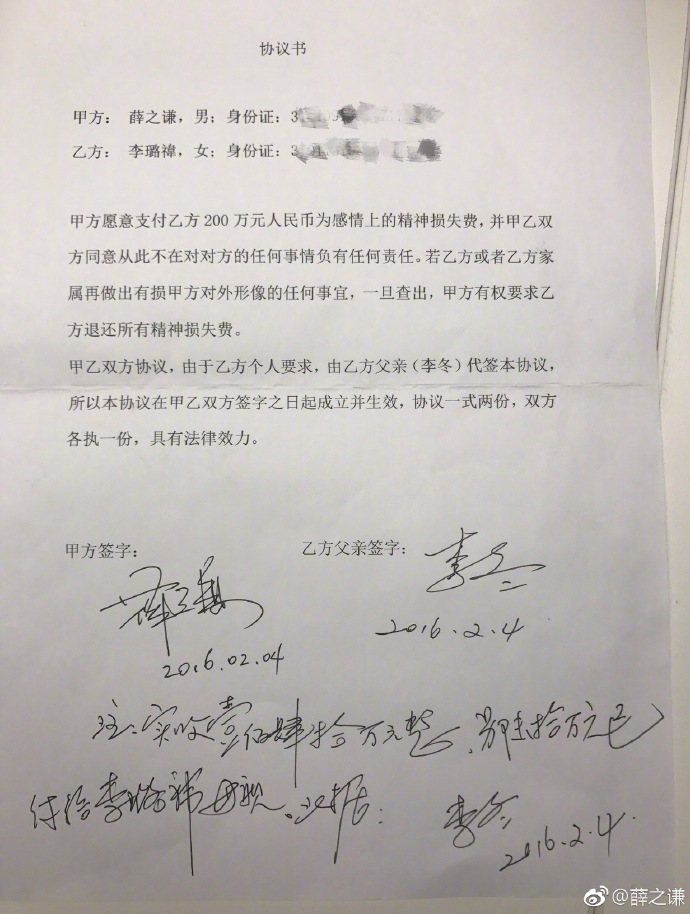 协议书
甲方： 薛之谦，男；身份证：3
乙方： 李璐禕，女；身份证：3
甲方愿意支付乙方 200 万元人民币为感情上的精神损失费，并甲乙双
方同意从此不在对对方的任何事情负有任何责任。若乙方或者乙方家
属再做出有损甲方对外形像的任何事宜，一旦查出，甲方有权要求乙
方退还所有精神损失费。
甲乙双方协议，由于乙方个人要求，由乙方父亲（李冬）代签本协议，
所以本协议在甲乙双方签字之日起成立并生效，协议一式两份，双方
各执一份，具有法律效力。
甲方签字： 乙方父亲签字：
薛之谦 李冬
2016.02.04 2016.2.4
注：实收壹佰肆拾万元整，陆拾万元已
付给李璐祎母亲。此据：
李冬
2016.2.4.
@薛之谦